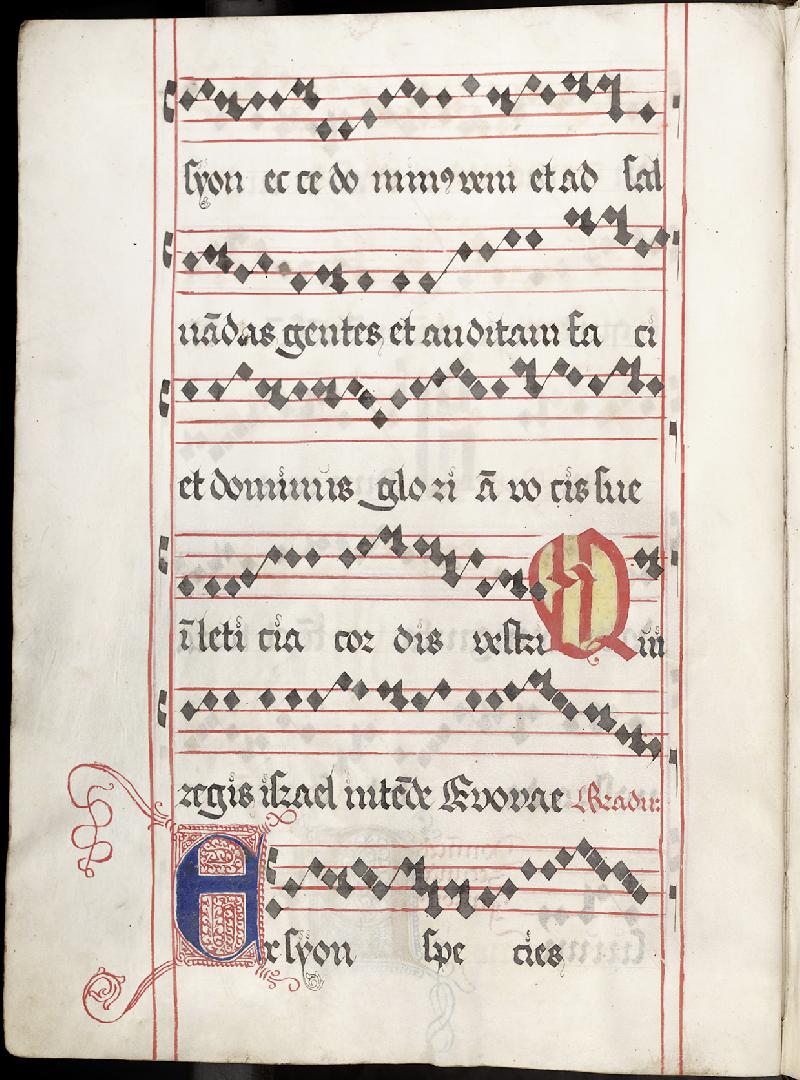 syon ec ce do minꝰ veni et ad sal
uādas gentes et auditam fa ci
et dominus glo ri ā vo cis sue
ī leti cia cor dis vestri Qui
regis israel intēde Evovae Gradu:
Ex syon spe cies